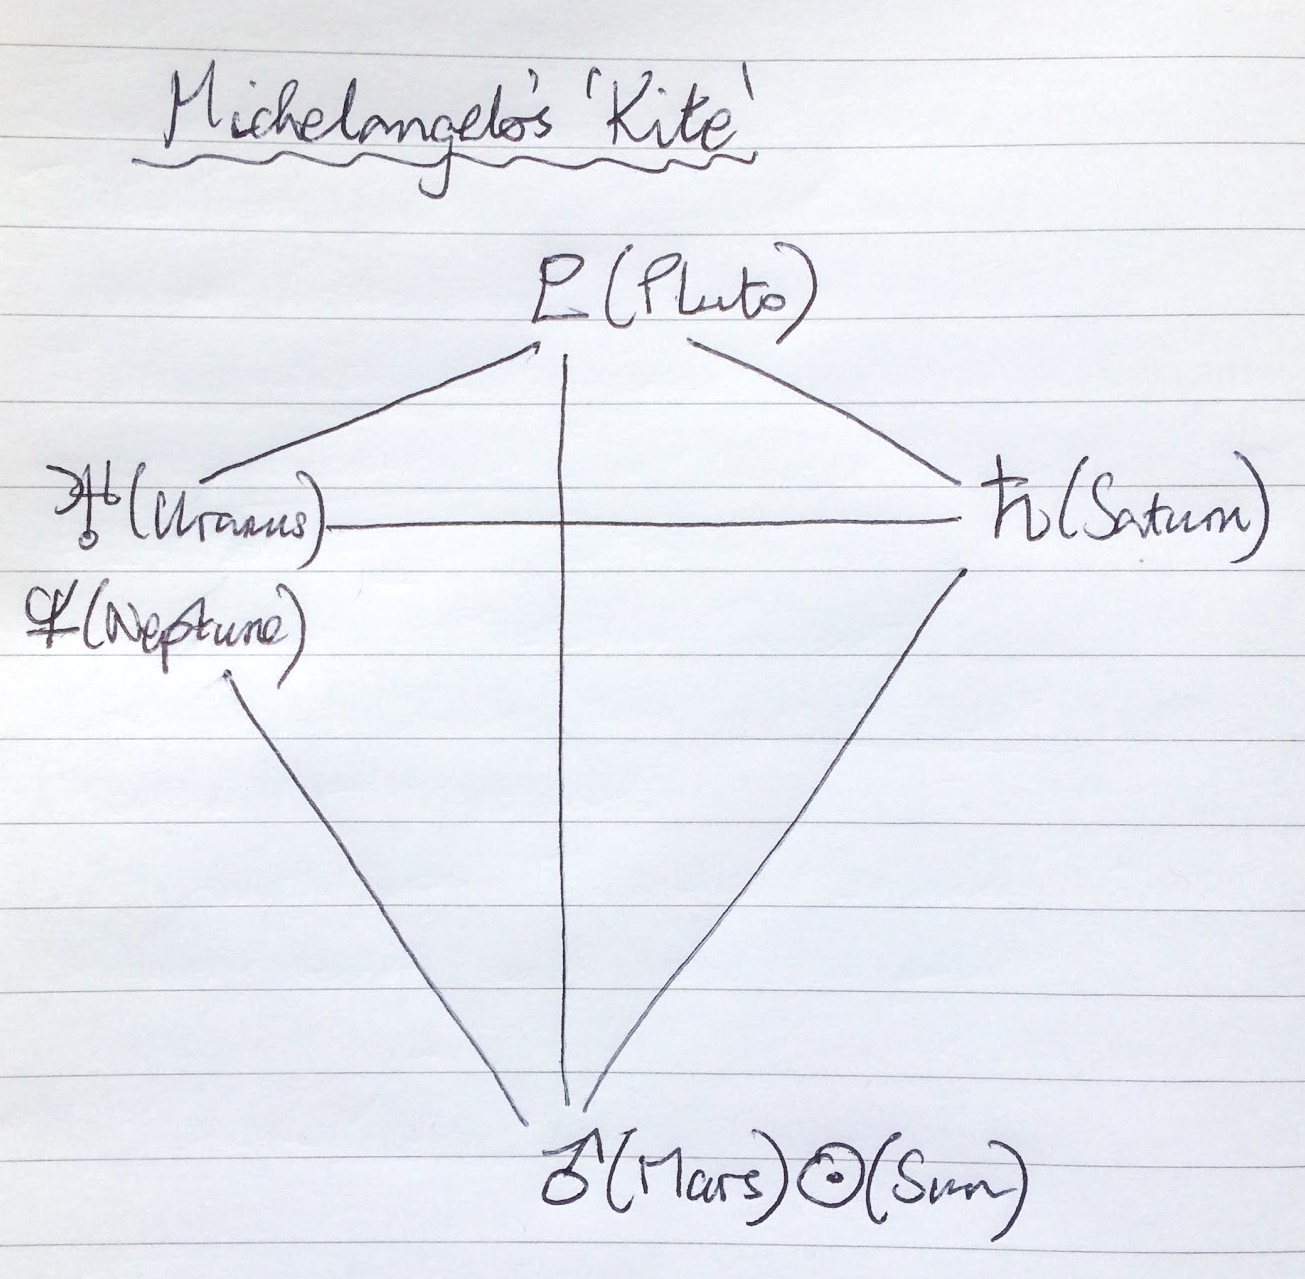 Michelangelo's 'Kite'
♇ (Pluto)
♅ (Uranus) ♄ (Saturn)
♆ (Neptune)
♂ (Mars) ☉ (Sun)